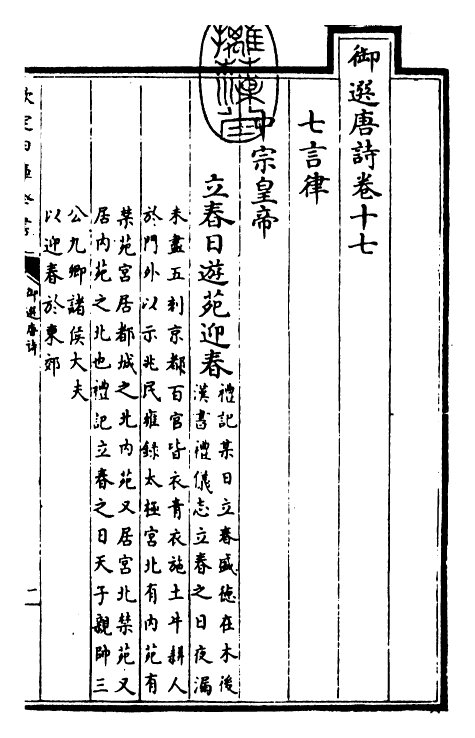 御選唐詩卷十七
七言律
中宗皇帝
立春日遊苑迎春
禮記某日立春盛德在木後
漢書禮儀志立春之日夜漏
未盡五刻京都百官皆衣青衣施土牛耕人
於門外以示兆民雍錄太極宮北有內苑有
禁苑宮居都城之北內苑又居宮北禁苑又
居內苑之北也禮記立春之日天子親帥三
公九卿諸侯大夫
以迎春於東郊
御選唐詩